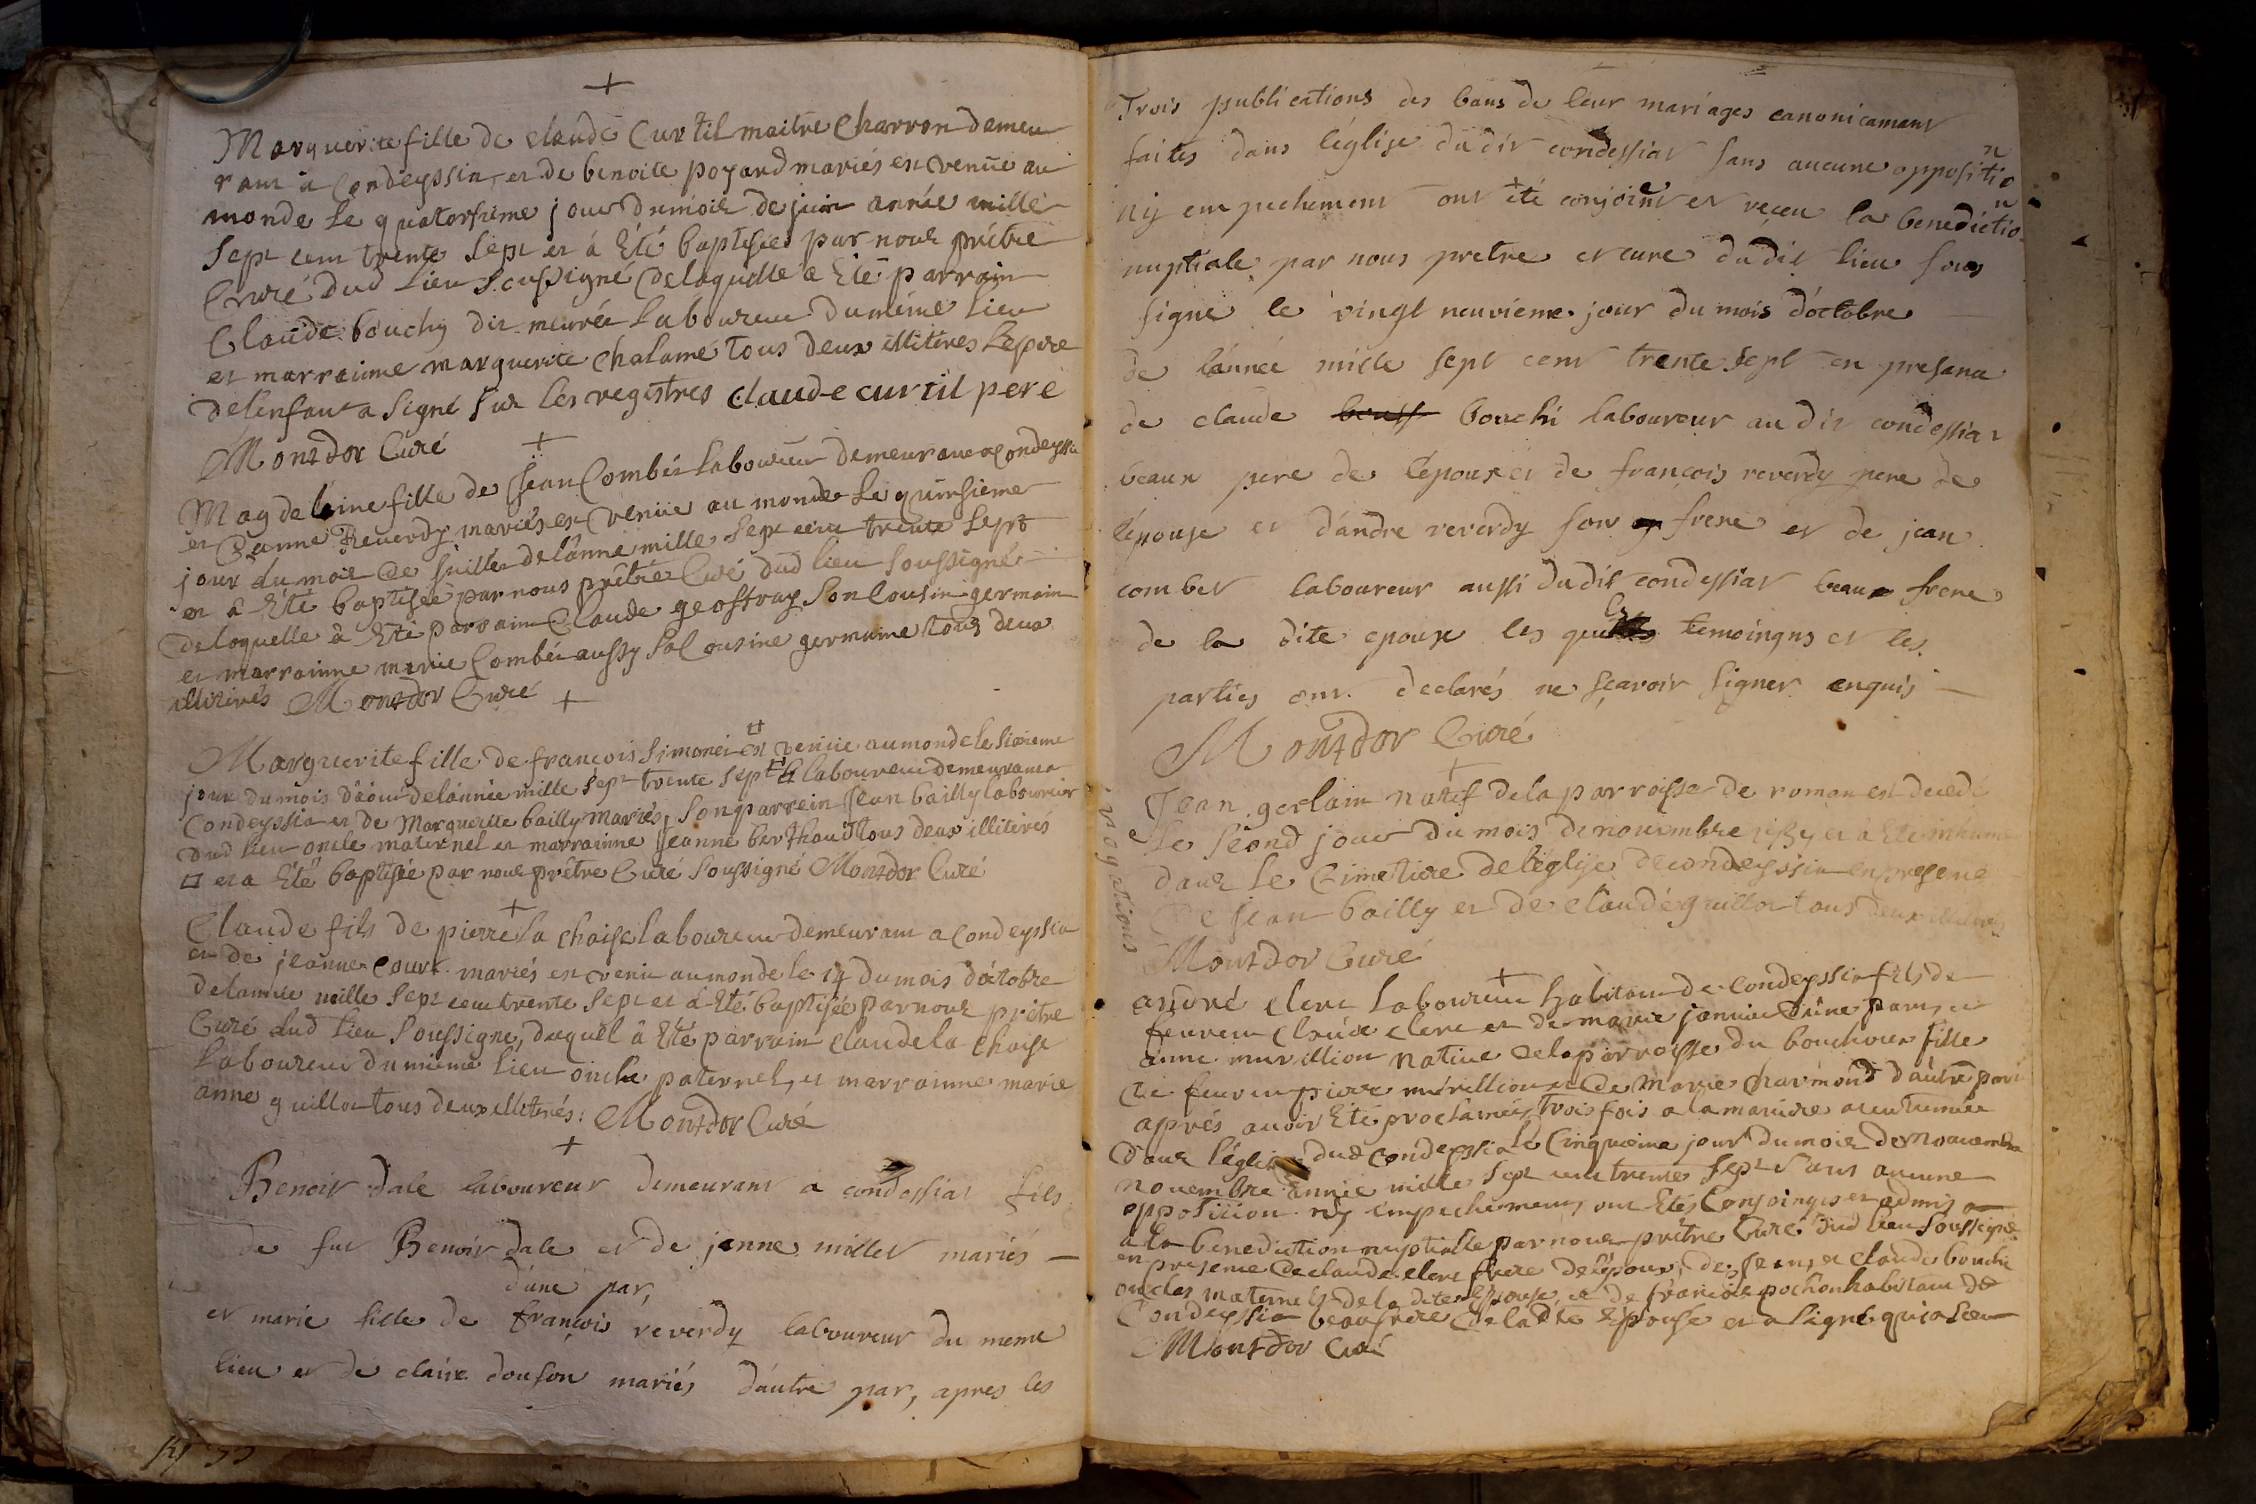 Marguerite fille de claude Curtil maitre Charron demeu
rant a Condeyssia, et de benoite poyard mariés est venüe au
monde le quatorsieme jour du mois de juin année mille
sept cent trente sept et à Eté baptisée par nous prêtre
Curé dud lieu soussigné de laquelle a Eté parrain
Claude bouchy dit meurée laboureur du même lieu
et marrainne marguerite chalame tous deux illitérés le pere
de l'enfant a signé sur les registres claude curtil pere
Montdor Curé
Magdeleine fille de Jean Combet laboureur demeurant a Condeyssia
et anne Reverdy mariés est venüe au monde le quinsieme
jour du mois de juillet de l'anne mille sept cent trente sept
et à Eté baptisée par nous prêtre Curé dud lieu soussigné
de laquelle à Eté parrain Claude geoffray son Cousin germain
et marrainne marie Combet aussy sa Cousine germaine tous deux
illitérés Montdor Curé
Marguerite fille de françois simonet est venüe au monde le sixieme
jour du mois d'aout de l'année mille sept trente sept laboureur demeurant a
Condeyssia et de Marguerite bailly mariés, son parrein Jean bailly laboureur
dud lieu oncle maternel et marrainne Jeanne berthaud tous deux illitérés
et a Eté baptisée par nous prêtre Curé soussigné Montdor Curé
Claude fils de pierre la chaise laboureur demeurant a Condeyssia
et de jeanne court mariés est venu au monde le 14 du mois d'octobre
de l'année mille sept cent trente sept et à Eté baptisée par nous prêtre
Curé dud lieu soussigné, duquel à Eté parrain claude la chaise
laboureur du mieme lieu oncle paternel, et marrainne marie
anne guillot tous deux illiterés: Montdor Curé
Benoit dale laboureur demeurant a condessiat fils
de fut Benoit dale et de janne millet mariés
d'une par,
et marie fille de françois reverdy laboureur du meme
lieu et de claire douson mariés d'autre par, apres les
Trois publications des bans de leur mariages canonicamant
faites dans l'église dudit condessiat sans aucune opposition
ny empechement ont été conjoint et reçeu la benediction
nuptiale par nous pretre et cure dudit lieu sous
signe le vingt neuvieme jour du mois d'octobre
de l'année mille sept cent trente sept en presance
de claude bouchi laboureur au dit condessiat
beaux pere de l'epoux et de françois reverdy pere de
l'epouse et d'andre reverdy son frere et de jean
combet laboureur aussi dudit condessiat beau frere
de la dite epouse les quels temoingns et les
parties ont declarés ne sçavoir signer enquis
Montdor Curé
Jean gerlain natif de la parroisse de roman est decedé
le second jour du mois de novembre 1737 et à Eté inhumé
dans le Cimetiere de l'église de condeyssia en presence
de Jean bailly et de claude guillot tous deux illiterés
Montdor Curé
rogations
andré clerc laboureur habitant de Condeyssia fils de
feu claude clerc et de marie jannin d'une part, et
anne murillion native de la parroisse du bouchoux fille
de feu pierre murillion et de Marie charmond d'autre part
aprés avoir Eté proclamés trois fois a la maniere accoutumée
dans l'église dud Condeyssia le Cinquieme jour du mois de Novembre
novembre année mille sept cent trente sept sans aucune
opposition ny empechement, ont Etés Conjoings et admis a
a la benediction nuptialle par nous prêtre Curé dud lieu soussigné
en presence de claude clerc frere de l'epoux, de Jean, et claude bouchi
oncles maternels de la dite epouse, et de françois pochon habitant de
Condeyssia beaufrere de la dte épouse et a signé qui a sceu
Montdor Curé